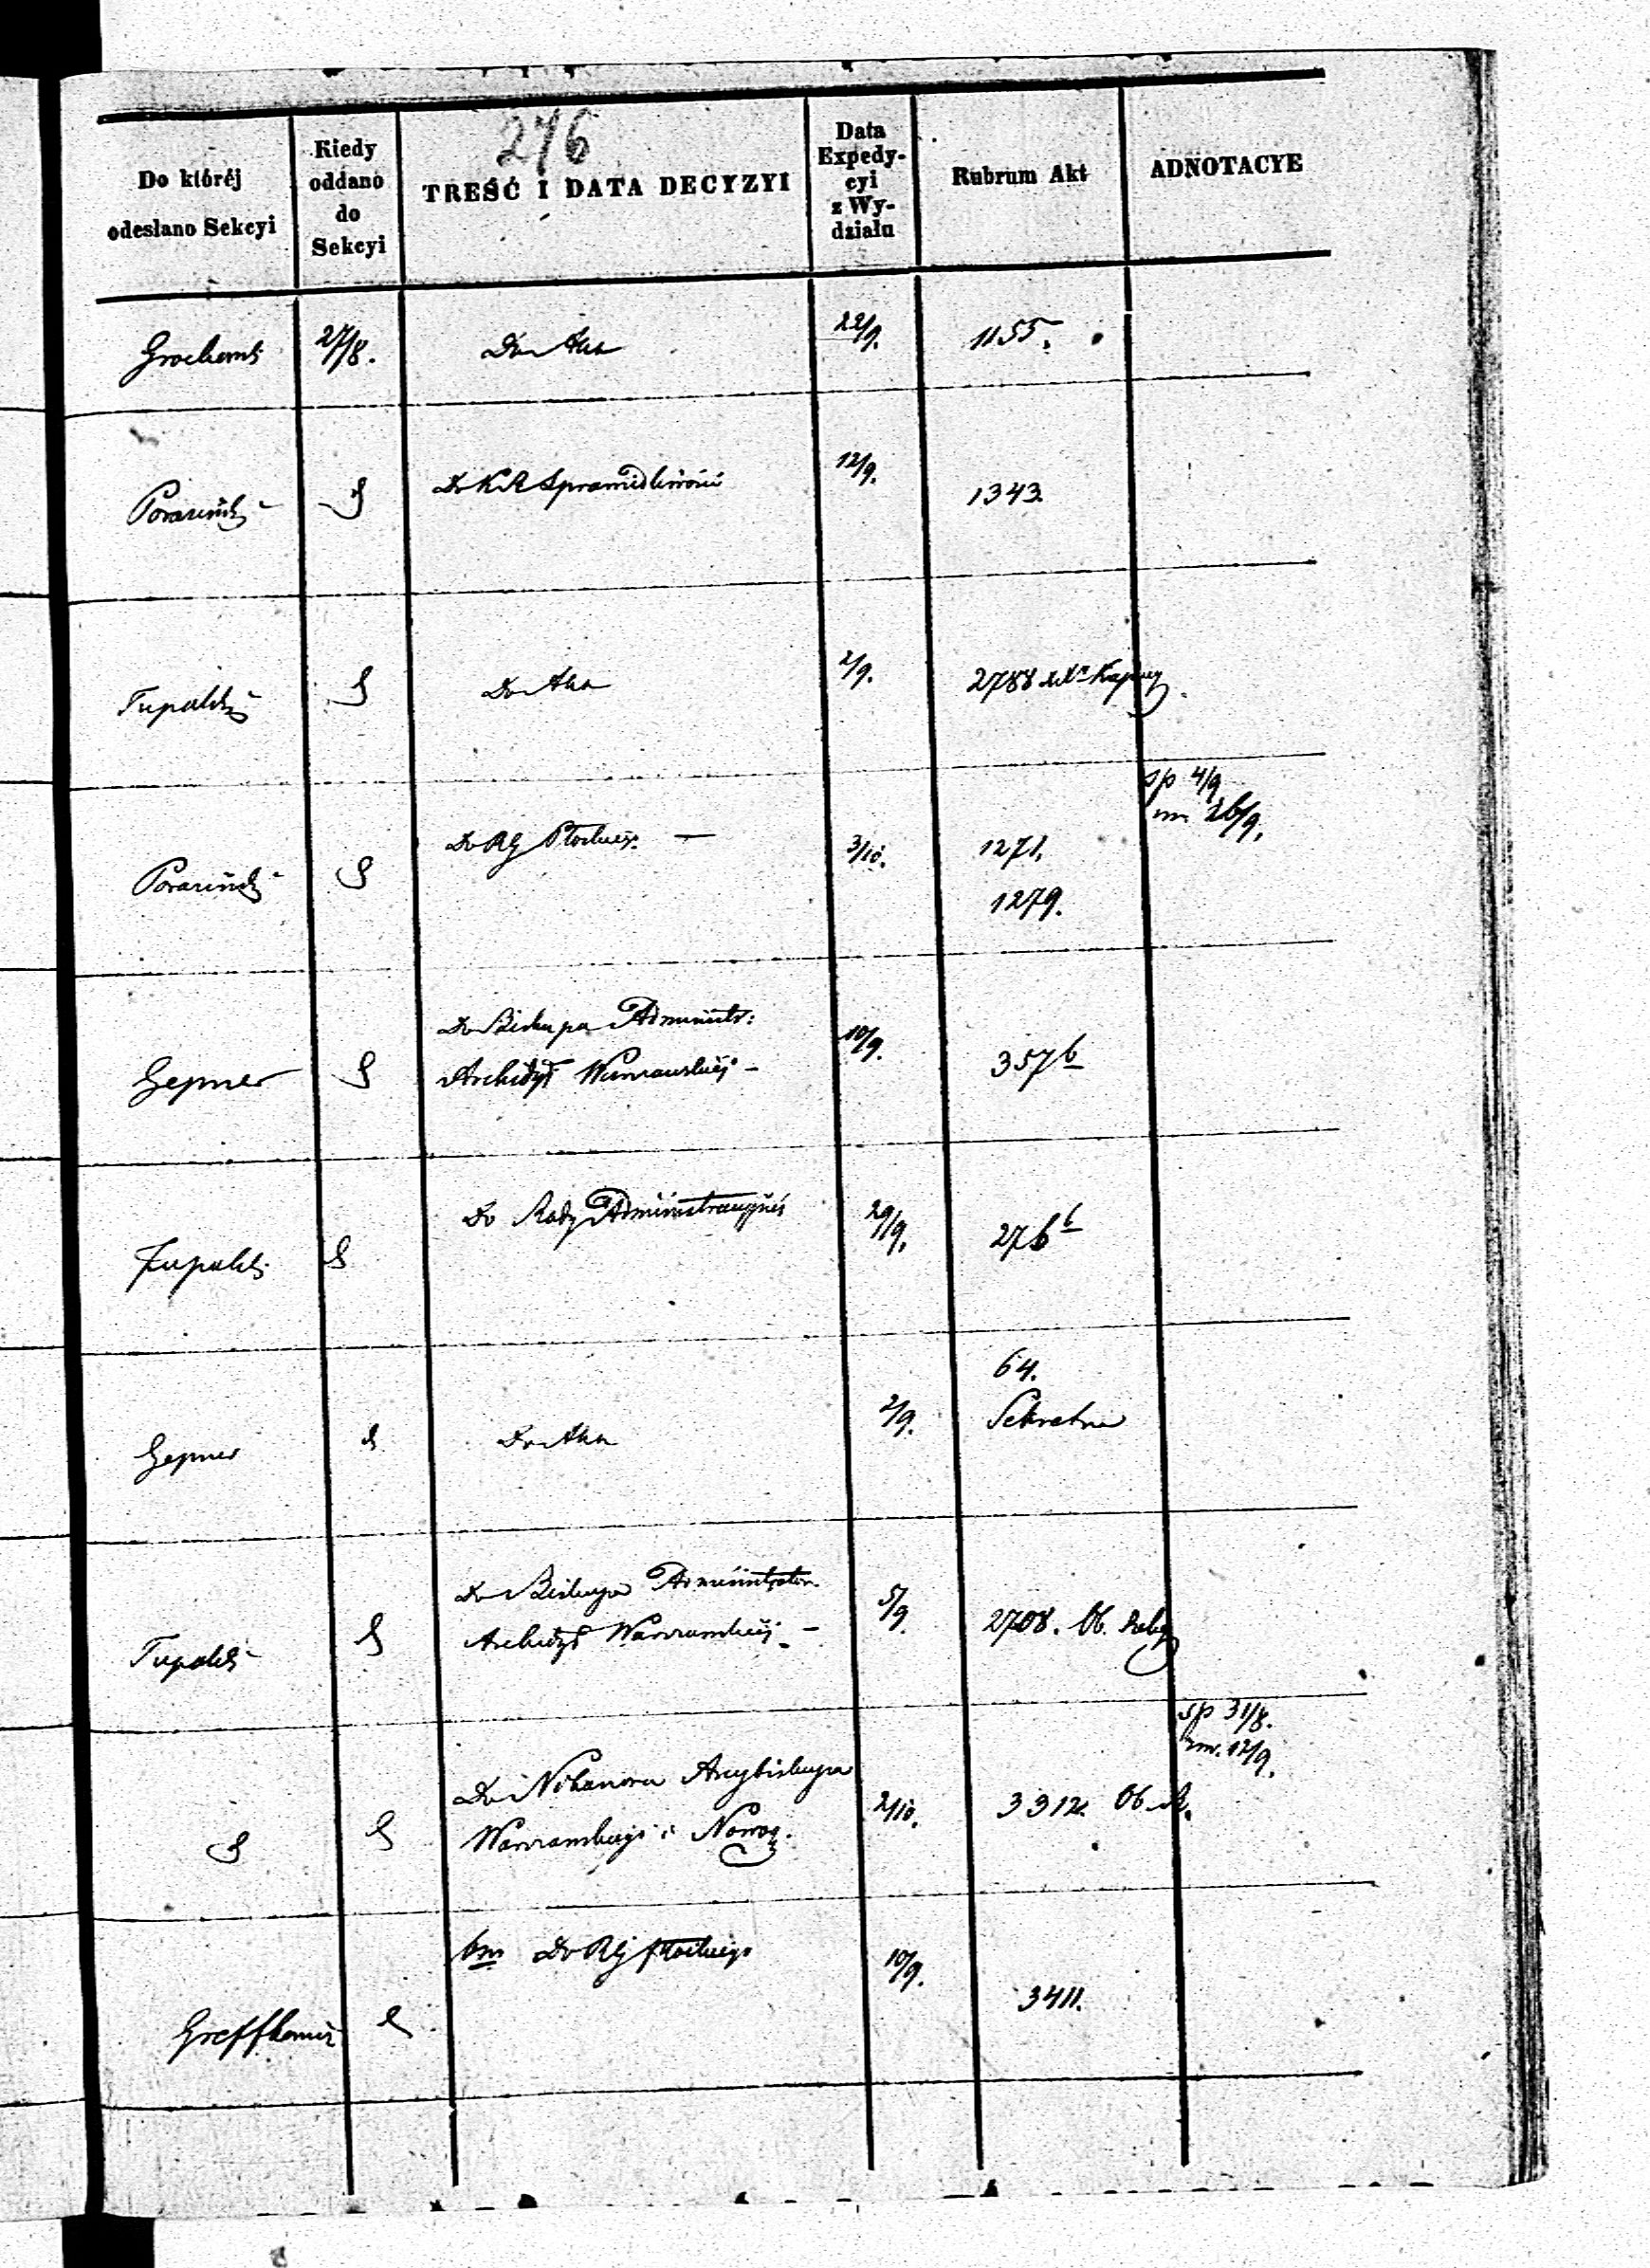 276
Do któréj
odeslano Sekcyi
Kiedy
oddano
do
Sekcyi
TREŚĆ I DATA DECYZYI
Data
Expedy-
cyi
z Wy-
działu
Rubrum Akt
ADNOTACYE
27/8.
Do Akt
22/9.
1155.
Do KR Sprawiedliwości
12/9.
1343.
Tupalski
Do Akt
2/9.
2788
Do RG Płockiej. —
3/10.
1271.
1279.
sp 4/9
26/9.
Gepner
Do Biskupa Administr:
Archidyec Warszawskiej –
10/9.
357 b
Tupalski
Do Rady Administracyjnej
29/9.
276 b
Gepner
Do Akt
2/9.
64.
Sekretne
Tupalski
Do Biskupa Administrator.
Archidyec Warszawskiej. –
5/9
2708.
Do Nikanora Arcybiskupa
Warszawskiego i Nowog.
2/10.
3312.
sp 31/8.
12/9.
Do RG Płockiego
10/9.
3411.